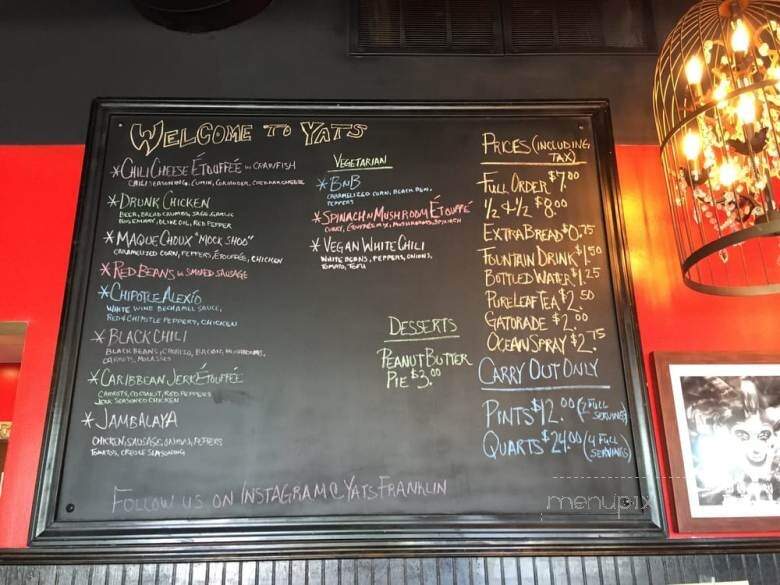 WELCOME TO YATS
*CHILI CHEESE ÉTOUFFÉE W/ CRAWFISH
CHILI SEASONING, CUMIN, CORIANDER, CHEDDAR CHEESE
*DRUNK CHICKEN
BEER, BREAD CRUMBS, SAGE, GARLIC
ROSEMARY, OLIVE OIL, RED PEPPER
*MAQUE CHOUX "MOCK SHOO"
CARAMELIZED CORN, PEPPERS, ÉTOUFFÉE, CHICKEN
*RED BEANS W/ SMOKED SAUSAGE
*CHIPOTLE ALEXIO
WHITE WINE BECHAMEL SAUCE,
RED & CHIPOTLE PEPPERS, CHICKEN
*BLACK CHILI
BLACK BEANS, CHORIZO, BACON, MUSHROOMS,
CARROTS, MOLASSES
*CARIBBEAN JERK ÉTOUFFÉE
CARROTS, COCONUT, RED PEPPERS
JERK SEASONED CHICKEN
*JAMBALAYA
CHICKEN, SAUSAGE, ONIONS, PEPPERS
TOMATOS, CREOLE SEASONING
VEGETARIAN
*BNB
CARAMELIZED CORN, BLACK BEAN,
PEPPERS
*SPINACH N MUSHROOM ÉTOUFFÉ
CURRY, MUSHROOMS, SPINACH
*VEGAN WHITE CHILI
WHITE BEANS, PEPPERS, ONIONS,
TOMATO, TOFU
DESSERTS
PEANUT BUTTER
PIE $3.00
PRICES (INCLUDING
TAX)
FULL ORDER $7.00
1/2 & 1/2 $8.00
EXTRA BREAD $0.75
FOUNTAIN DRINK $1.50
BOTTLED WATER $1.25
PURE LEAF TEA $2.50
GATORADE $2.00
OCEAN SPRAY $2.75
CARRY OUT ONLY
PINTS $12.00 (2 FULL
SERVINGS)
QUARTS $24.00 (4 FULL
SERVINGS)
FOLLOW US ON INSTAGRAM @YATSFRANKLIN
menupix